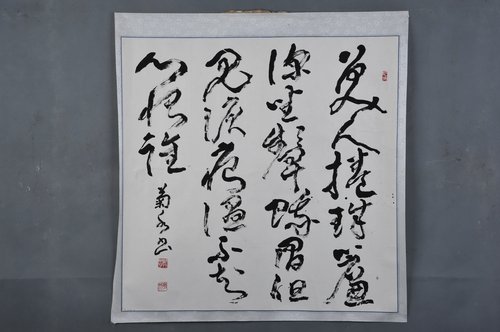 美人捲珠簾
深坐顰蛾眉但
見淚痕濕不知
心恨誰
菊書